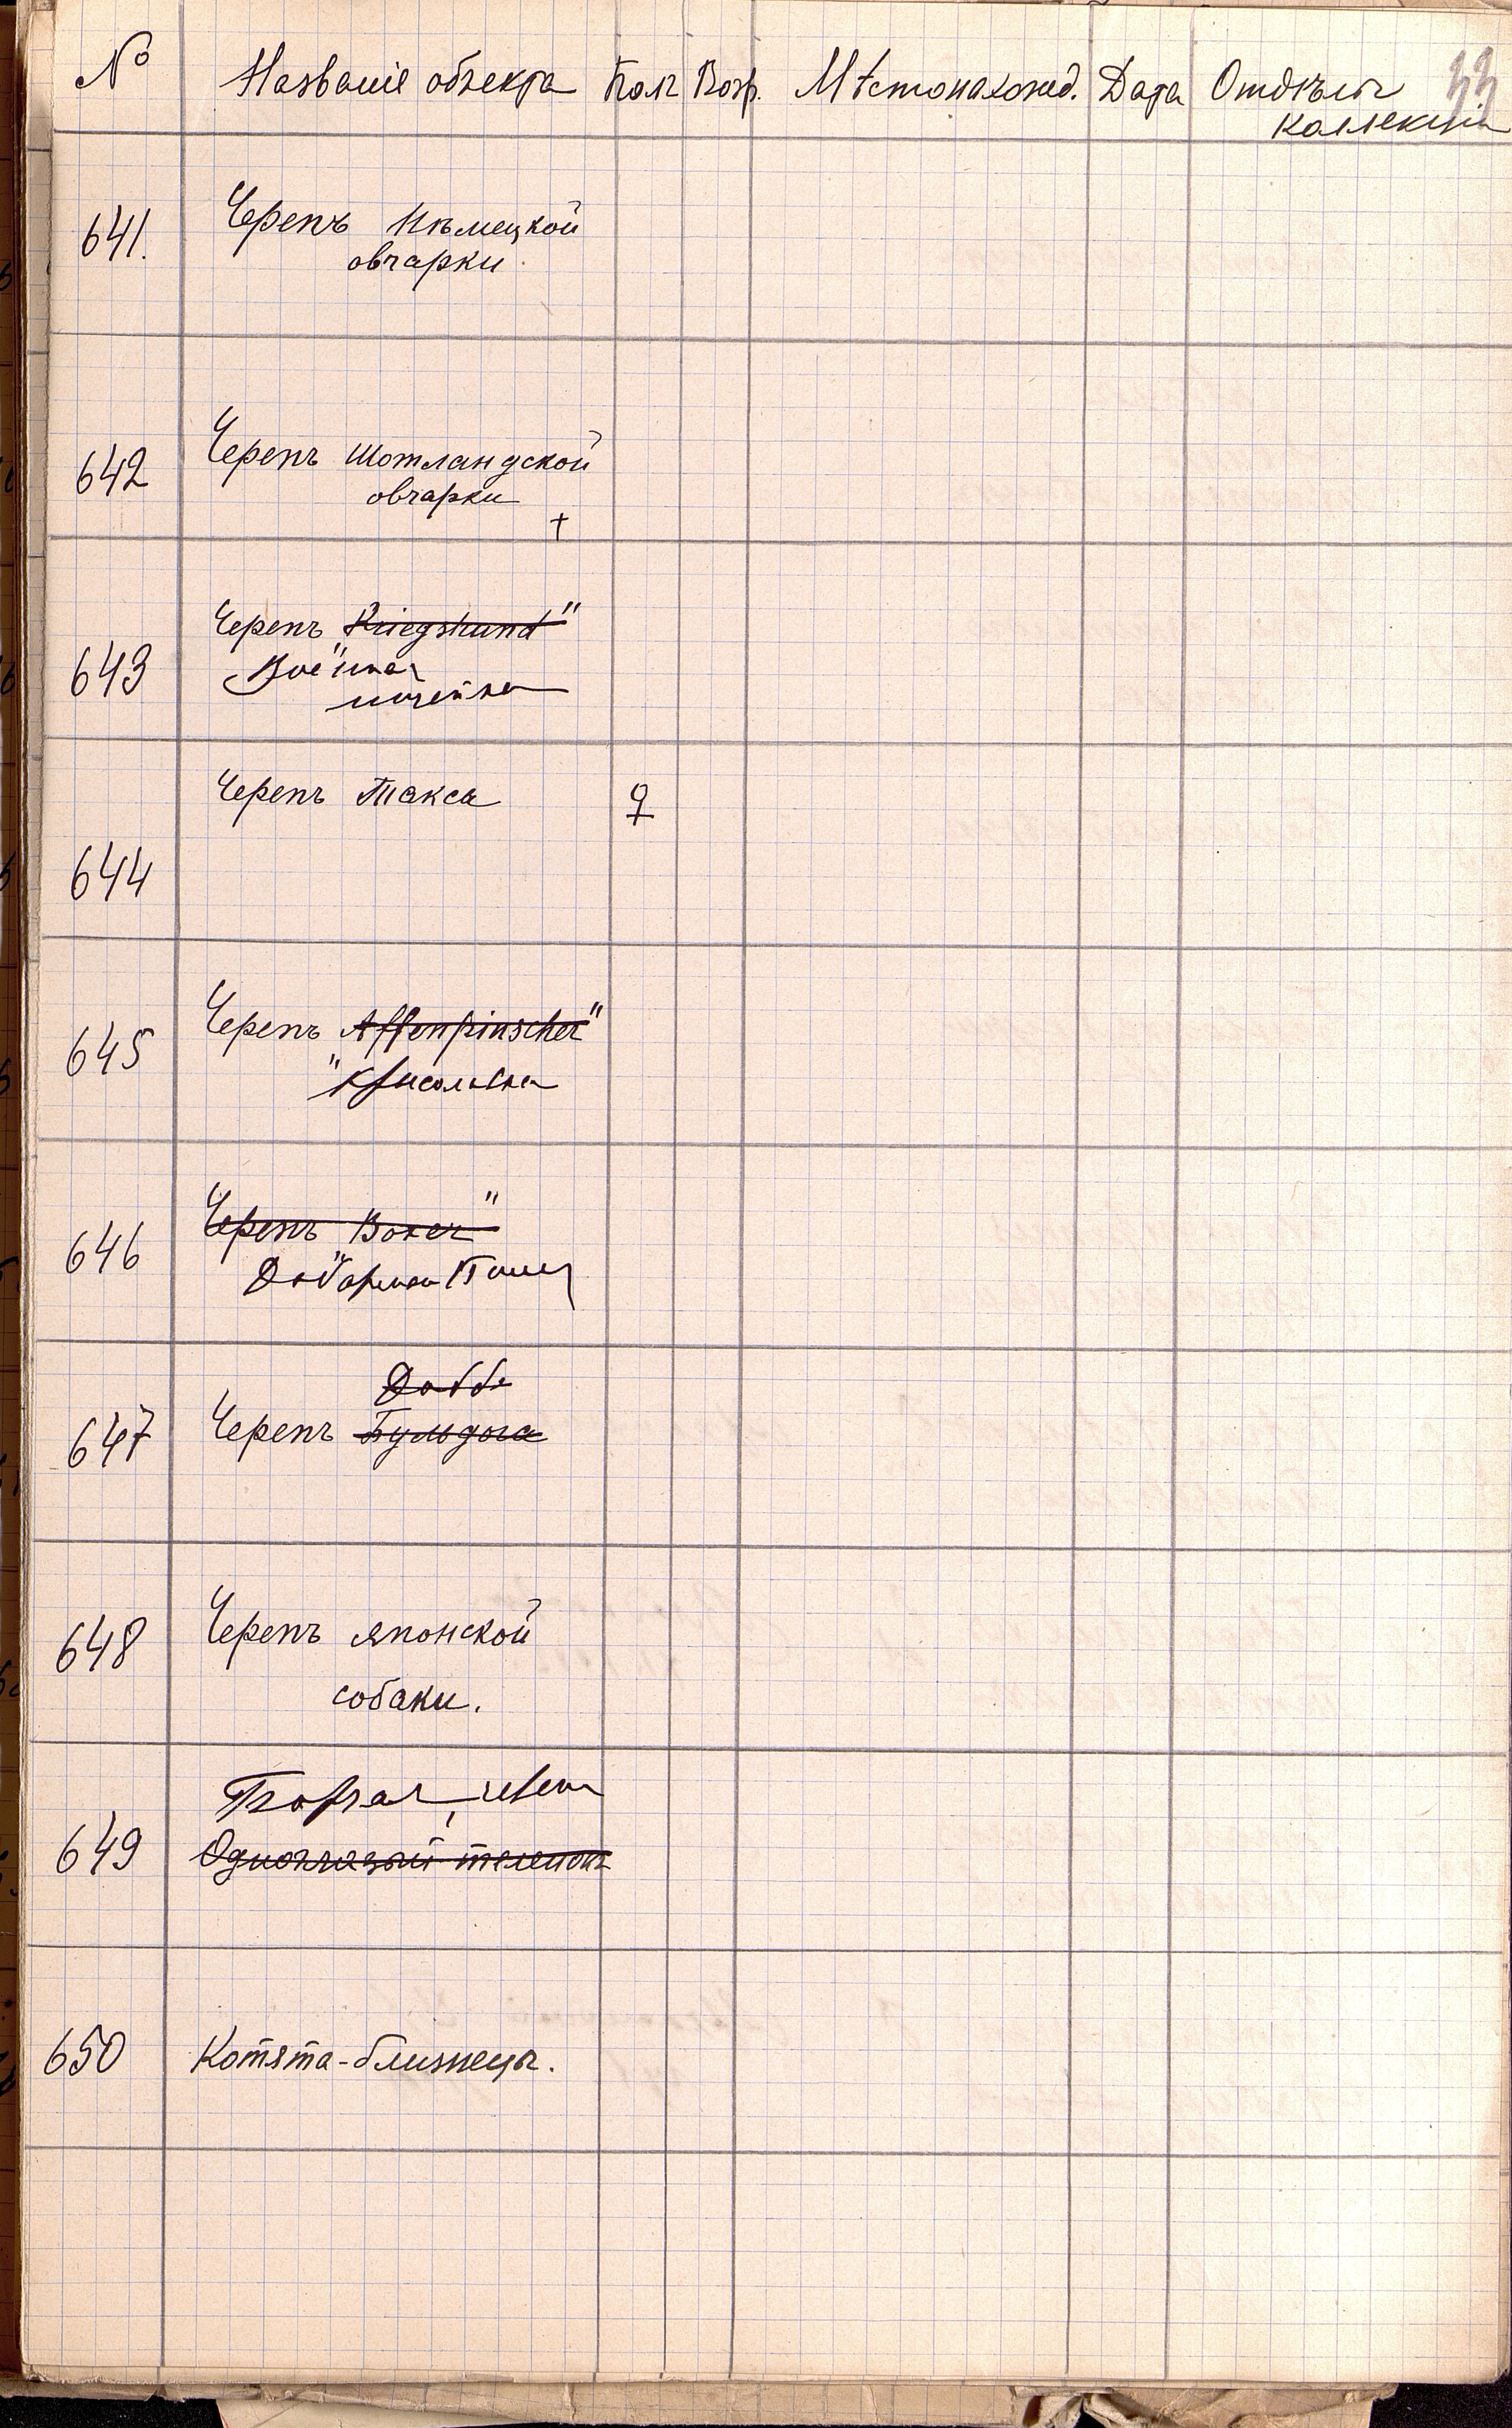 № Названіе объекта Полъ Возр. Мѣстонахожд. Дата Отдѣлы 33
коллекціи
641. Черепъ Нѣмецкой
овчарки
642 Черепъ Шотландской
овчарки
+
643 Черепъ Kriegshund"
"Военная
ищейка
Черепъ Такса ♀
644
645 Черепъ Affenpinscher"
"Крысоловка
646 Черепъ Boxer"
"Доберман Пинч
Догъ
647 Черепъ Бульдога
648 Черепъ японской
собаки.
649 Одноглазый теленокъ
650 Котята-близнецы.